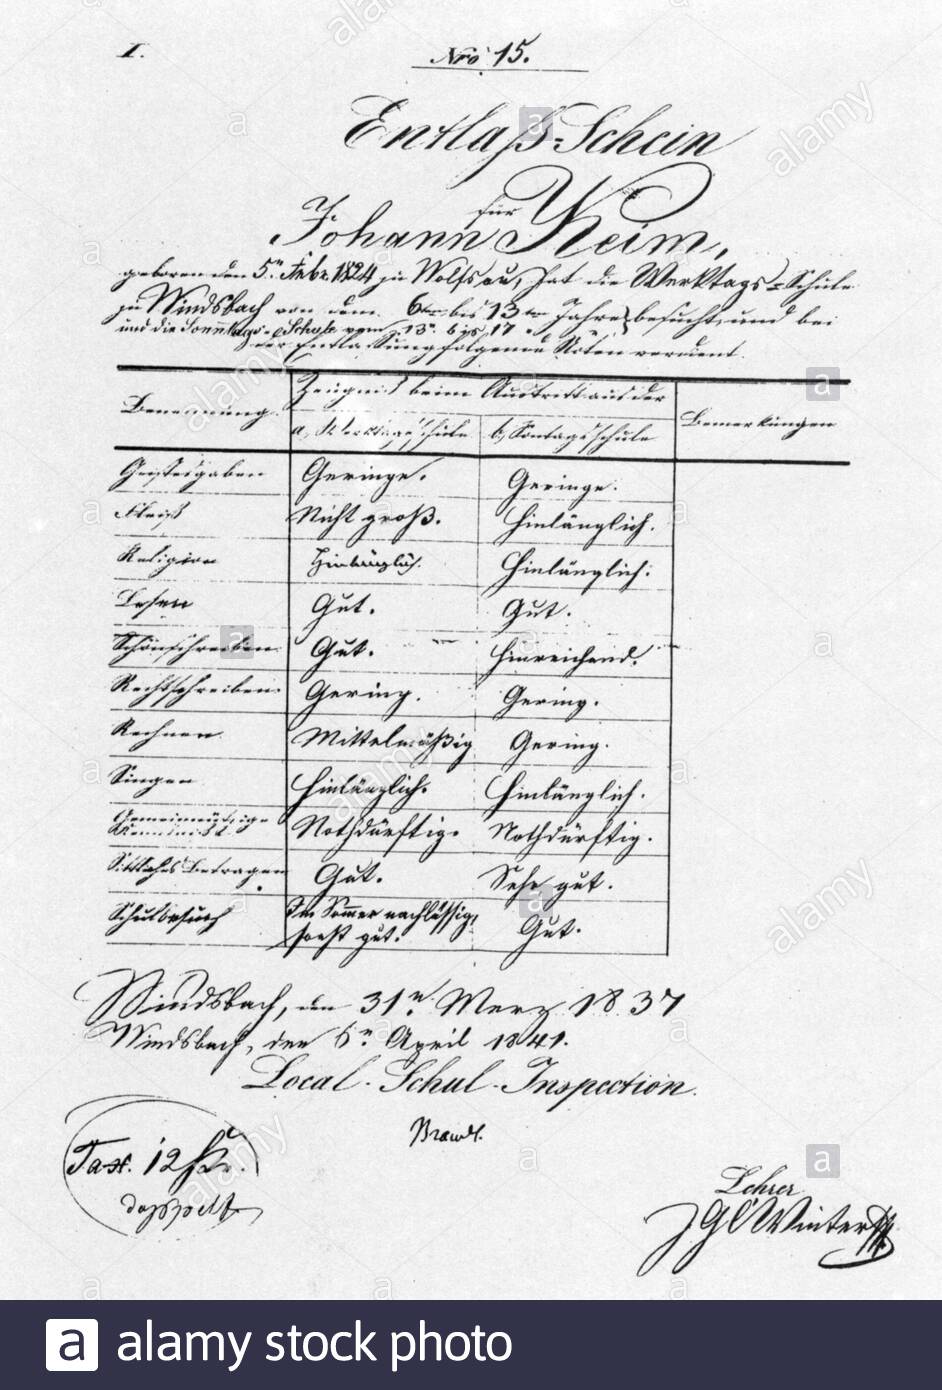 I.
Nro 15.
Entlaß-Schein
für
Johann Keim,
geboren den 5n Febr. 1824 zu Wolfsau, hat die Werktags-Schule
zu Windsbach von dem 6ten bis 13ten Jahre besucht, und bei
und die Sonntags-Schule vom 13n bis 17n
der Entlassung folgende Noten verdient.
Benennung. Zeugniß beim Austritt aus der Bemerkungen
a, Werktagsschule b, Sontagsschule
Geistesgaben Geringe. Geringe.
Fleiß Nicht groß. Hinlänglich.
Religion Hinlänglich. Hinlänglich.
Lesen Gut. Gut.
Schönschreiben Gut. Hinreichend.
Rechtschreiben Gering. Gering.
Rechnen Mittelmäßig Gering.
Singen Hinlänglich. Hinlänglich.
Gemeinnützige Nothdürftig. Nothdürftig.
Kenntniße
Sittliches Betragen Gut. Sehr gut.
Schulbesuch Im Sommer nachlässig, Gut.
sonst gut.
Windsbach, den 31n Merz 1837
Windsbach, den 6n April 1841.
Local-Schul-Inspection.
Brandt.
Tax. 12 kr.
doppelt
Lehrer
Winter
a alamy stock photo